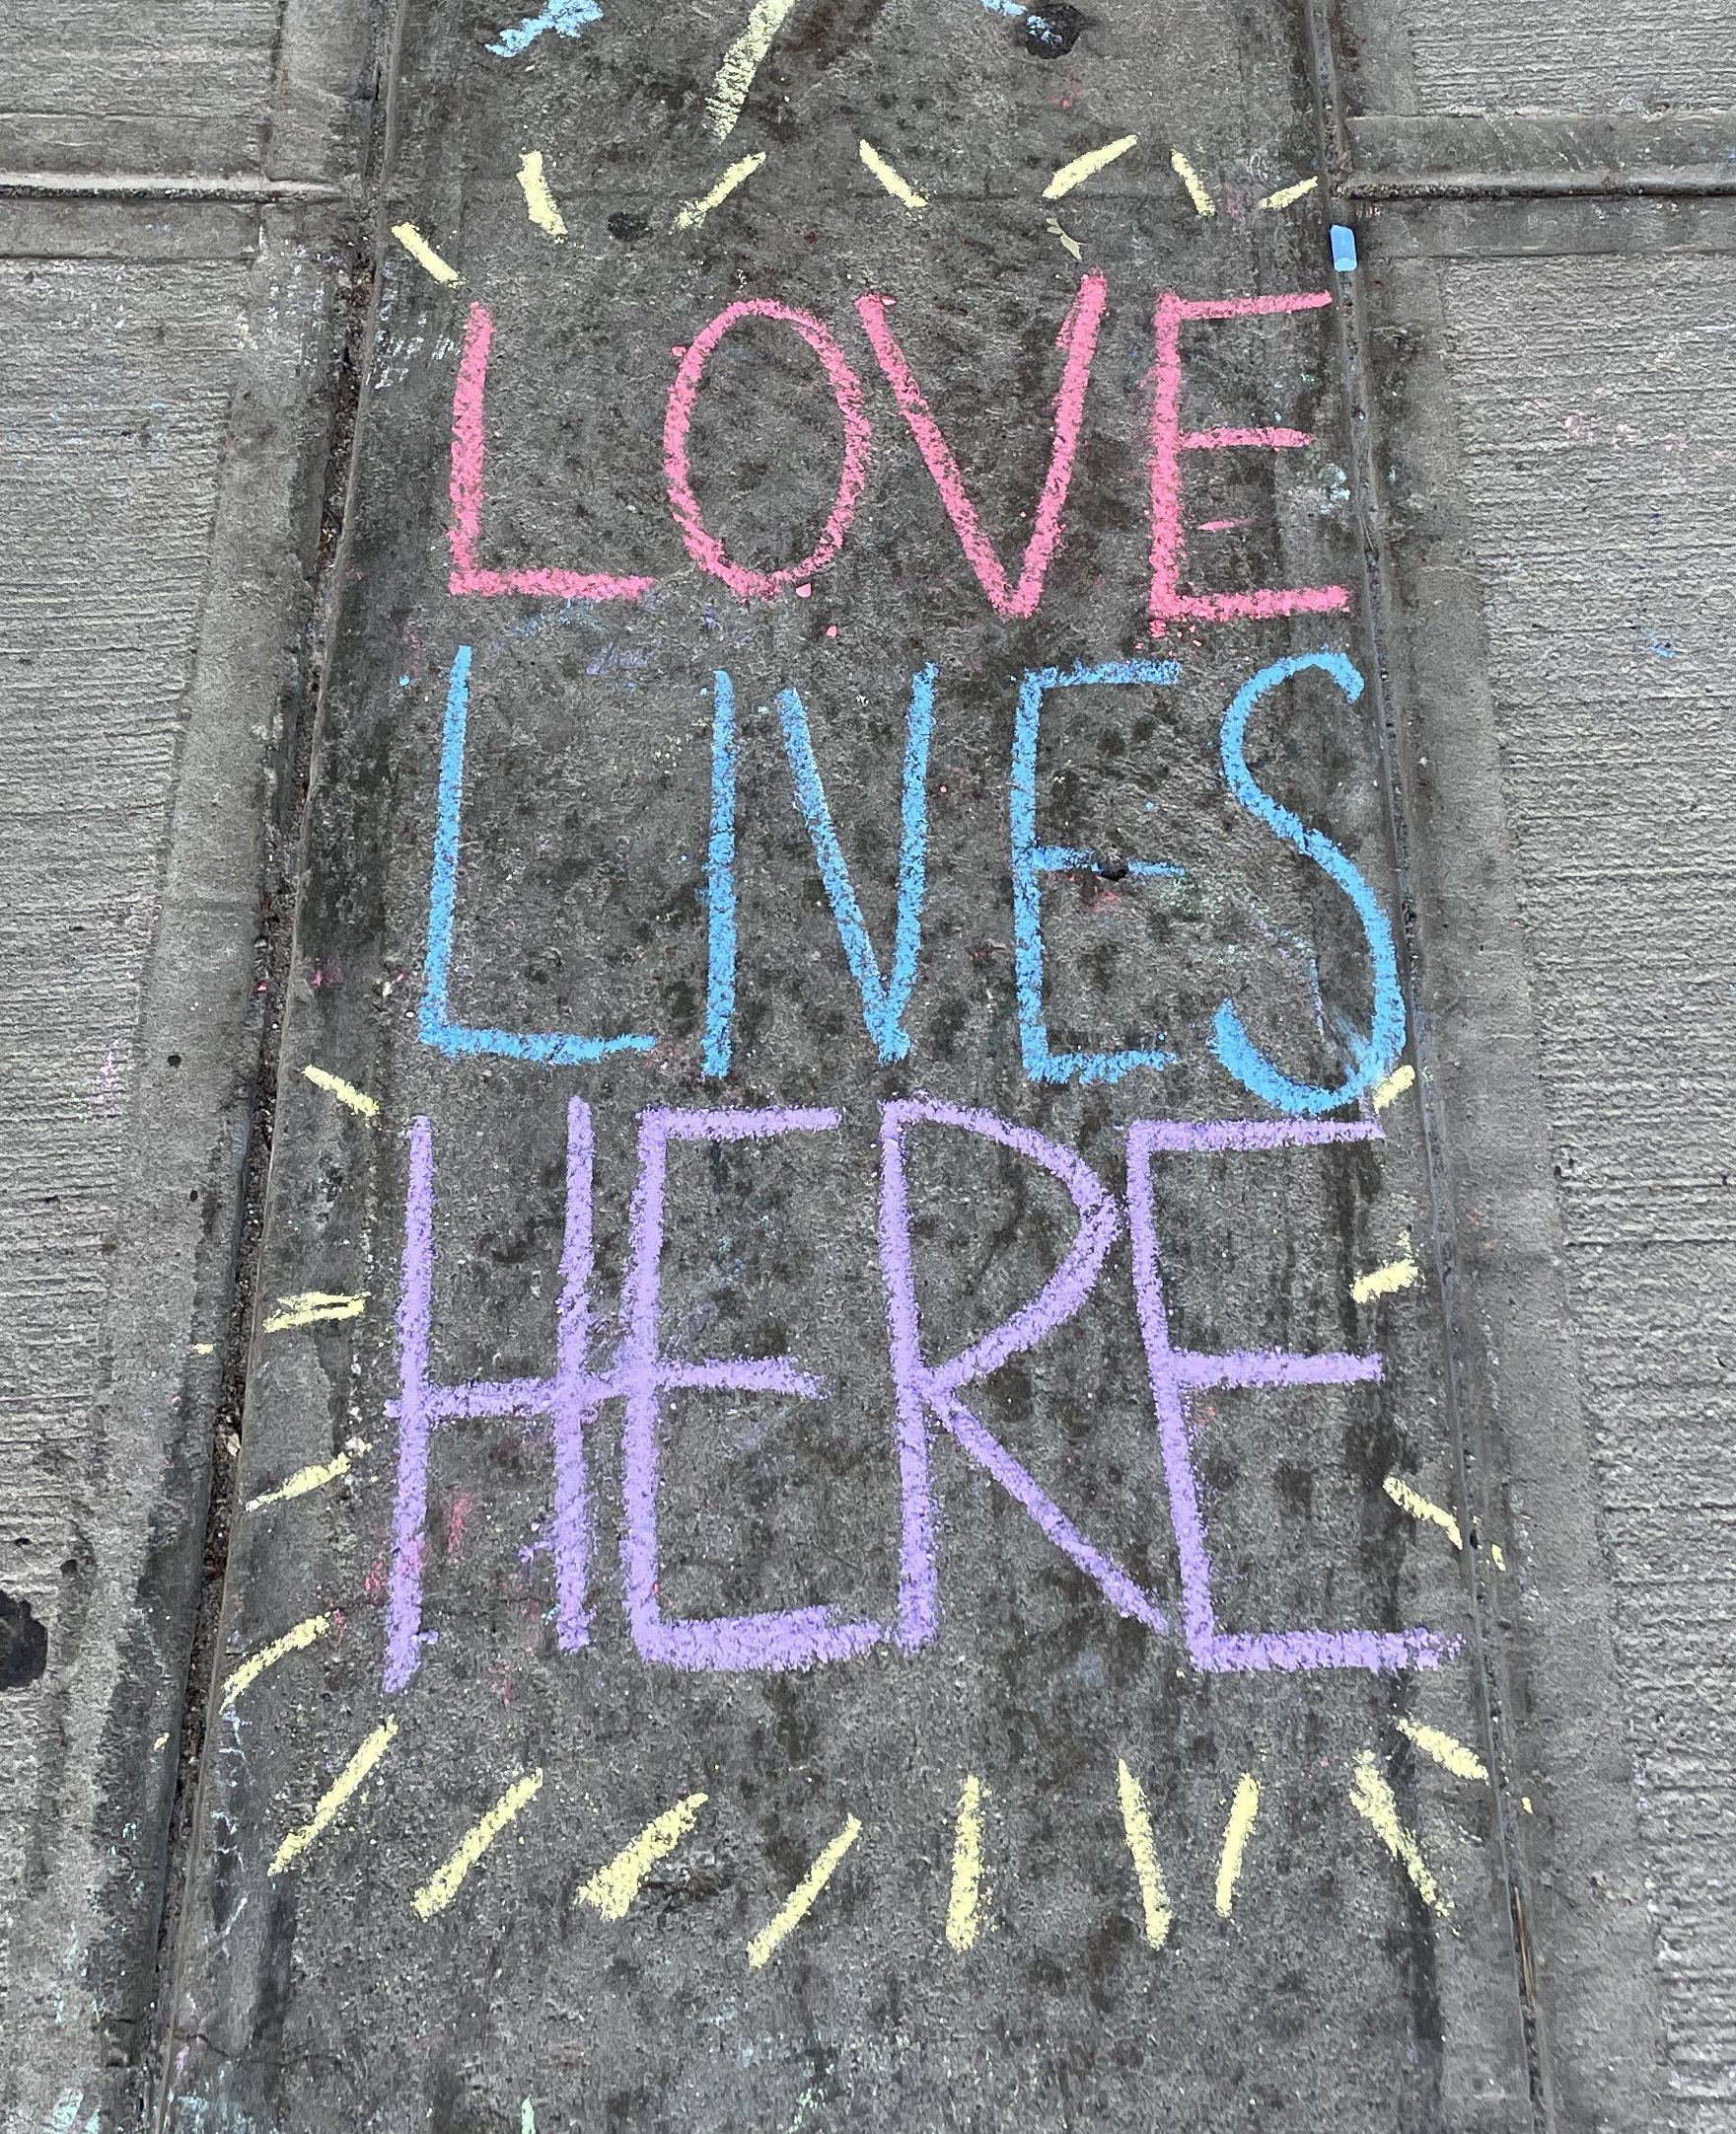 LOVE
LIVES
HERE